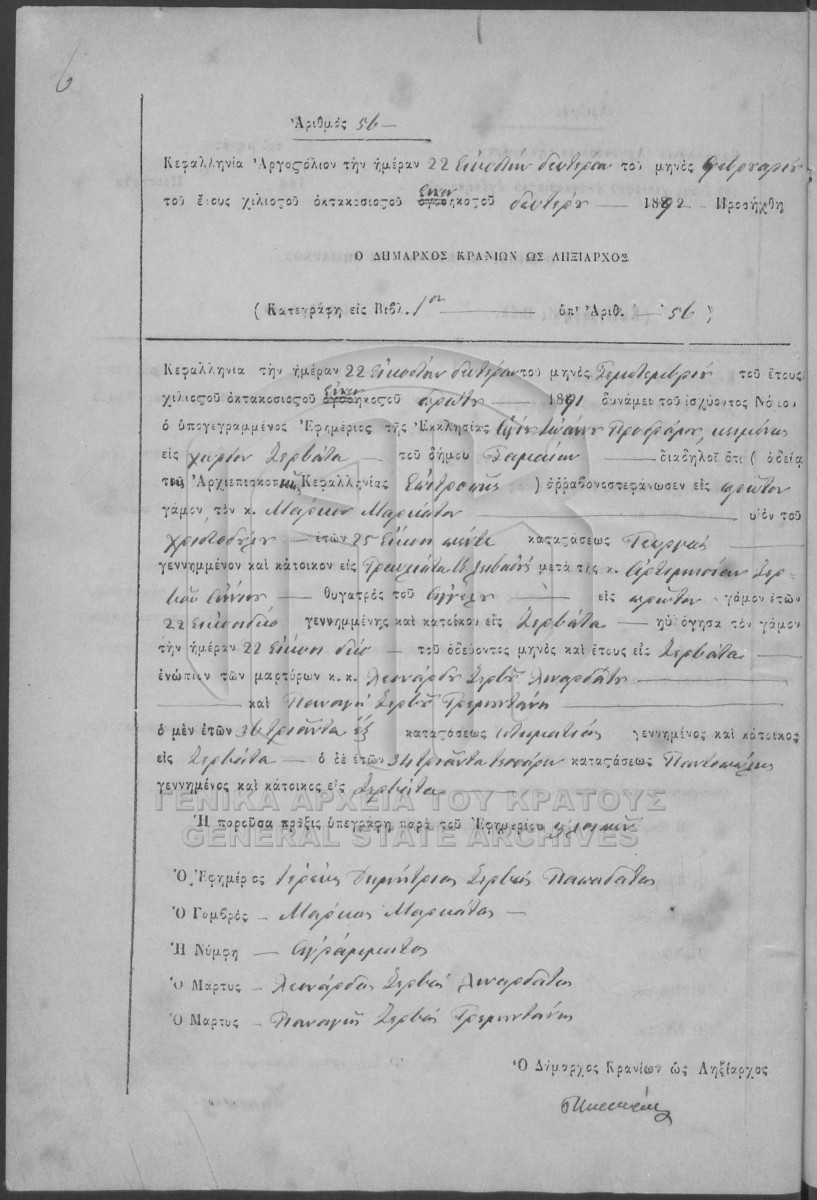 6
Ἀριθμός 56 —
Κεφαλληνία Ἀργοστόλιον τὴν ἡμέραν 22 Εἰκοστὴν δευτέραν τοῦ μηνὸς Φεβρουαρίου
τοῦ ἔτους χιλιοστοῦ ὀκτακοσιοστοῦ ἐνενηκοστοῦ δευτέρου — 1892 — Προσήχθη
Ο ΔΗΜΑΡΧΟΣ ΚΡΑΝΙΩΝ ΩΣ ΛΗΞΙΑΡΧΟΣ
(Κατεγράφη εἰς Βιβλ. 1ον — ὑπ' Ἀριθ. — 56)
Κεφαλληνία τὴν ἡμέραν 22 Εἰκοστὴν δευτέραν τοῦ μηνὸς Σεπτεμβρίου τοῦ ἔτους
χιλιοστοῦ ὀκτακοσιοστοῦ ἐνενηκοστοῦ πρώτου — 1891 δυνάμει τοῦ ἰσχύοντος Νόμου
ὁ ὑπογεγραμμένος Ἐφημέριος τῆς Ἐκκλησίας Ἁγίου Ἰωάννου Προδρόμου, κειμένης
εἰς χωρίον Ζερβάτα — τοῦ δήμου Σαμαίων — διαδηλοῖ ὅτι (ἀδείᾳ
τῆς Ἀρχιεπισκοπικῆς Κεφαλληνίας Ἐπιτροπῆς) ἀρραβονοστεφάνωσεν εἰς πρῶτον
γάμον τὸν κ. Μαρῖνον Μαρκάτον — υἱὸν τοῦ
Χριστοδούλου — ἐτῶν 25 Εἴκοσι πέντε καταστάσεως Γεωργὸς —
γεννημμένον καὶ κάτοικον εἰς μετὰ τῆς κ. Ἀρτεμησίαν Ζερ-
— θυγατρὸς τοῦ Ἀγγέλου — εἰς πρῶτον γάμον ἐτῶν
22 Εἰκοσιδύο γεννημμένης καὶ κατοίκου εἰς Ζερβάτα — ηὐλόγησα τὸν γάμον
τὴν ἡμέραν 22 Εἴκοσι δύο — τοῦ ὁδεύοντος μηνὸς καὶ ἔτους εἰς Ζερβάτα —
ἐνώπιον τῶν μαρτύρων κ. κ. Λεονάρδου Ζερβοῦ Λιναρδάτου —
— καὶ Παναγῆ Ζερβοῦ Τρεμεντάνη —
ὁ μὲν ἐτῶν 36 τριάντα ἕξ καταστάσεως κτηματίας γεννημένος καὶ κάτοικος
εἰς Ζερβάτα — ὁ δὲ ἐτῶν 34 τριάντα τεσσάρων καταστάσεως Παντοπώλης
γεννημένος καὶ κάτοικος εἰς Ζερβάτα —
ΓΕΝΙΚΑ ΑΡΧΕΙΑ ΤΟΥ ΚΡΑΤΟΥΣ
Ἡ παροῦσα πρᾶξις ὑπεγράφη παρὰ τοῦ Ἐφημερίου
GENERAL STATE ARCHIVES
Ὁ Ἐφημέριος Ἱερεὺς Δημήτριος Ζερβὸς Παπαδάτος
Ὁ Γαμβρὸς — Μαρῖνος Μαρκάτος —
Ἡ Νύμφη — Ἀγράμματος
Ὁ Μαρτυς — Λεονάρδος Ζερβὸς Λιναρδάτος
Ὁ Μαρτυς — Παναγῆς Ζερβὸς Τρεμεντάνης
Ὁ Δήμαρχος Κρανίων ὡς Ληξίαρχος